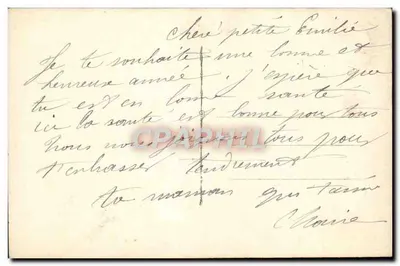 Chère petite Emilie
Je te souhaite une bonne et
heureuse année. J'espère que
tu est en bone santé
ici la santé est bonne pour tous
Nous nous tous pour
t'enbrasser tendrement
ta maman qui t'aime